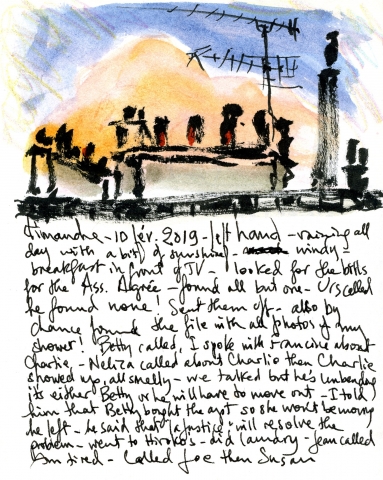 dimanche - 10 fév. 2019 - left hand - raining all
day with a bit of sunshine - windy -
breakfast in front of TV - looked for the bills
for the Ass. Agréé - found all but one - Urs called
he found none! Sent them off - also by
chance found the file with all photos of my
shower! Betty called, I spoke with Francine about
Charlie, - Neliza called about Charlie then Charlie
showed up, all smelly - we talked but he's unbending
its either Betty or he will have to move out - I told
him that Betty bought the apt so she won't be moving
he left - he said that "la justice" will resolve the
problem - went to Hiroko's - did laundry - Jean called
I'm tired - Called Joe then Susan